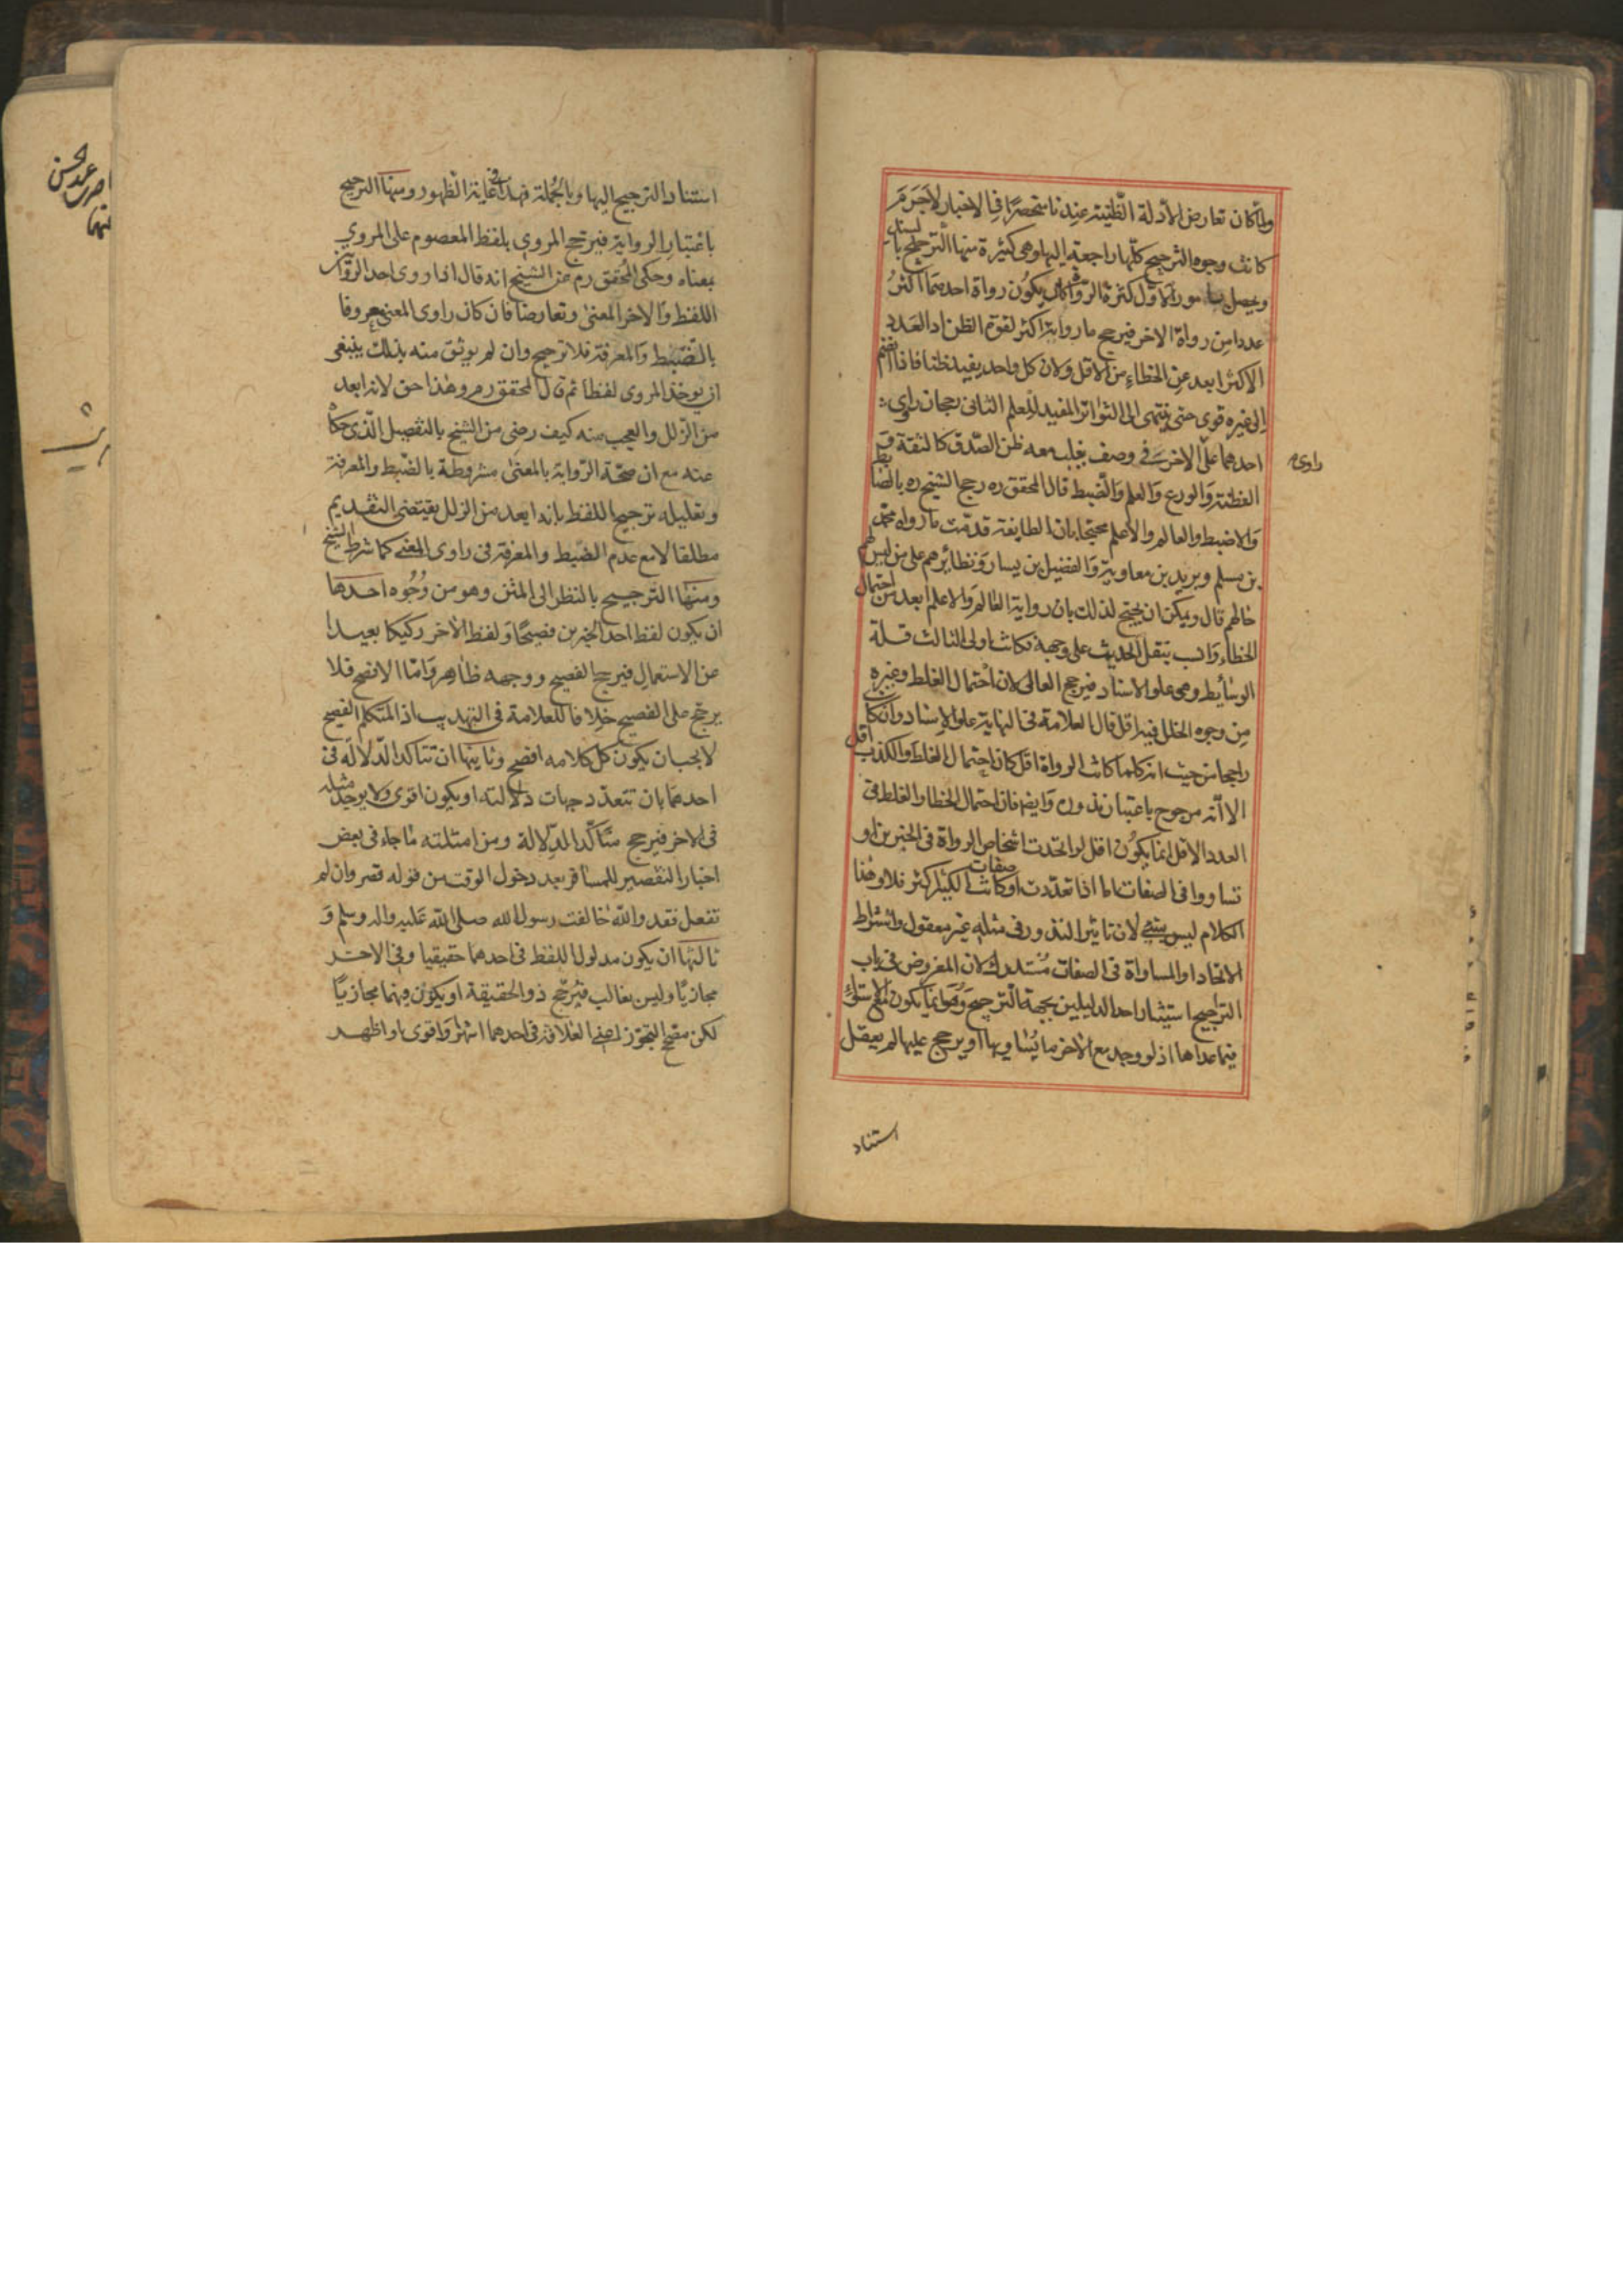 ولما كان تعارض الادلة الظنية عندنا منحصرا في الاخبار لاجرم
كانت وجوه الترجيح كلها راجعة اليها وهي كثيرة منها الترجيح بالسند
ويحصل بامور الاول كثرة الرواة كان يكون رواة احدهما اكثر
عددا من رواة الاخر فيرجح ما رواية اكثر لقوة الظن اذ العدد
الاكثر ابعد عن الخطاء من الاقل ولان كل واحد يفيد ظنا فاذا انضم
الى غيره قوى حتى ينتهى الى التواتر المفيد للعلم الثاني رجحان راوي
احدهما على الاخر في وصف يغلب معه ظن الصدق كالثقة و
راوى
الفطنة والورع والعلم والضبط قال المحقق ره رجح الشيخ ره بالضابط
والاضبط والعالم والاعلم محتجا بان الطايفة قدمت ما رواه محمد
بن مسلم وبريد بن معاوية والفضيل بن يسار ونظائرهم على من ليس له
حالهم قال ويمكن ان يحتج لذلك بان رواية العالم والاعلم ابعد من احتمال
الخطاء وانسب بنقل الحديث على وجهه فكانت اولى الثالث قلة
الوسائط وهى علو الاسناد فيرجح العالى لان احتمال الغلط وغيره
من وجوه الخلل فيه اقل قال العلامة في النهاية علو الاسناد وان كا
راجحا من حيث انه كلما كانت الرواة اقل كان احتمال الغلط والكذب اقل
الا انه مرجوح باعتبار ندوره وايضا فان احتمال الخطا والغلط في
العدد الاقل انما يكون اقل لو اتحدت اشخاص الرواة في الخبرين او
تساووا في الصفات اما اذا تعددت او كانت صفات الكثير اكثر فلا وهذا
الكلام ليس بشئ لان تاثير الندور في مثله غير معقول واشتراط
الاتحاد او المساواة في الصفات مستدرك لان المفروض في باب
التراجيح استيثار احد الدليلين بجهة الترجيح وهو انما يكون مع الاستواء
فيما عداها اذ لو وجد مع الاخر ما يساويها او يرجح عليها لم يعقل
استناد
استناد الترجيح اليها وبالجملة فهذا في غاية الظهور ومنها الترجيح
باعتبار الرواية فيرجح المروي بلفظ المعصوم على المروي
بمعناه وحكى المحقق ره عن الشيخ انه قال اذا روى احد الراويين
اللفظ والاخر المعنى وتعارضا فان كان راوى المعنى معروفا
بالضبط والمعرفة فلا ترجيح وان لم يوثق منه بذلك ينبغى
ان يوخذ المروى لفظا ثم قال المحقق ره وهذا حق لانه ابعد
من الزلل والعجب منه كيف رضى من الشيخ بالتفصيل الذى حكاه
عنه مع ان صحة الرواية بالمعنى مشروطة بالضبط والمعرفة
وتعليله ترجيح اللفظ بانه ابعد من الزلل يقتضى التقديم
مطلقا لا مع عدم الضبط والمعرفة في راوى المعنى كما شرط الشيخ
ومنها الترجيح بالنظر الى المتن وهو من وجوه احدها
ان يكون لفظ احد الخبرين فصيحا ولفظ الاخر ركيكا بعيدا
عن الاستعمال فيرجح الفصيح ووجهه ظاهر واما الافصح فلا
يرجح على الفصيح خلافا للعلامة في التهذيب اذ المتكلم الفصيح
لا يجب ان يكون كل كلامه افصح وثانيها ان تتاكد الدلالة في
احدهما بان تتعدد جهات دلالته او يكون اقوى ولا يوجد مثله
في الاخر فيرجح متاكد الدلالة ومن امثلته ما جاء في بعض
اخبار التقصير للمسافر بعد دخول الوقت من قوله قصر وان لم
تفعل فقد والله خالفت رسول الله صلى الله عليه واله وسلم و
ثالثها ان يكون مدلول اللفظ في احدهما حقيقيا وفي الاخر
مجازيا وليس بغالب فيرجح ذو الحقيقة او يكون فيهما مجازيا
لكن مصحح التجوز اعنى العلاقة في احدهما اشهر واقوى او اظهر